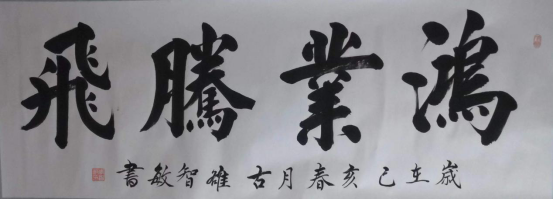 鴻業騰飛
歲在己亥春月古雄智敏書